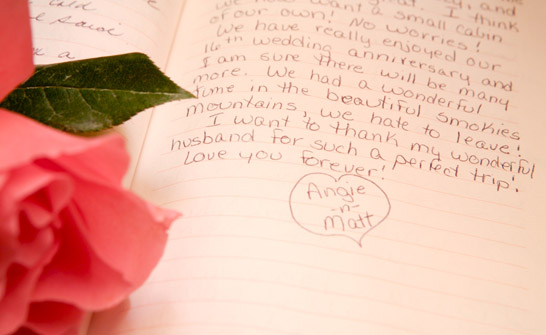 want a small cabin
of our own! No worries!
We have really enjoyed our
16th wedding anniversary and
I am sure there will be many
more. We had a wonderful
time in the beautiful smokies
mountains, we hate to leave!
I want to thank my wonderful
husband for such a perfect trip!
Love you forever!
Angie
-n-
Matt
said
a